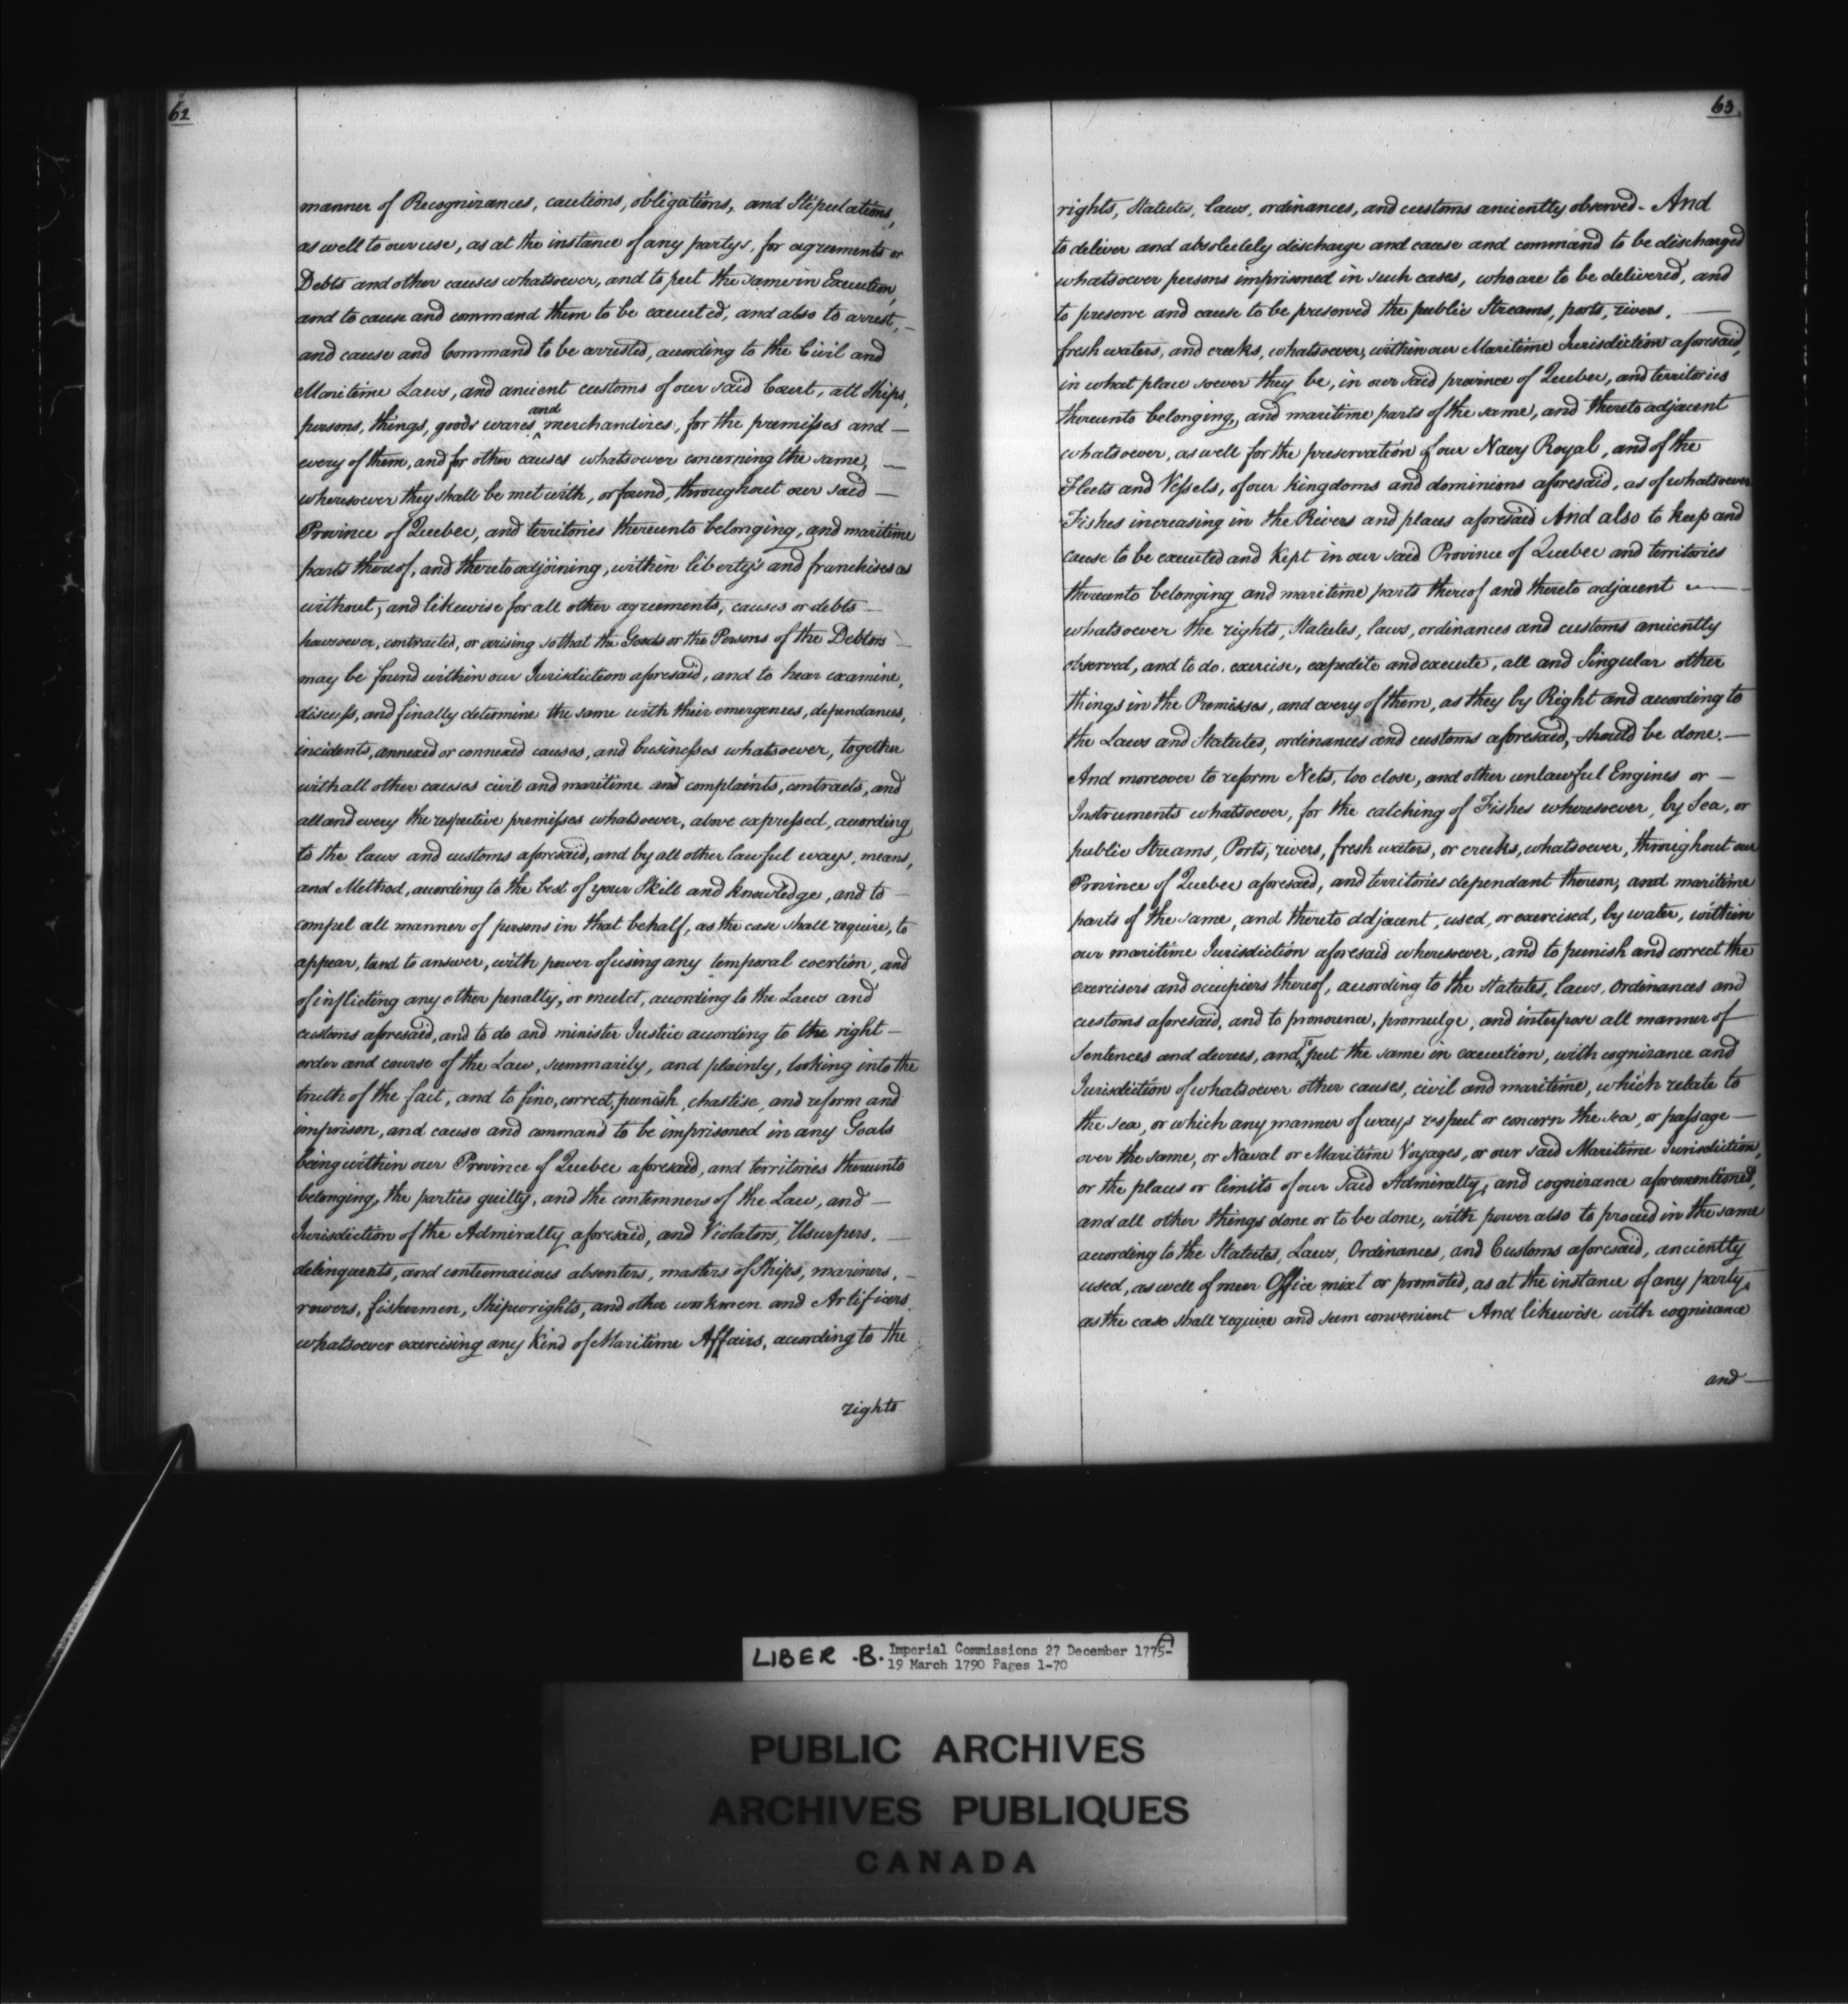 62
manner of Recognizances, cautions, obligations, and Stipulations,
as well to our use, as at the instance of any partys, for agreements or
Debts and other causes whatsoever, and to put the same in Execution,
and to cause and command them to be executed, and also to arrest, —
and cause and Command to be arrested, according to the Civil and
Maritime Laws, and ancient customs of our said Court, all Ships,
persons, things, goods wares and merchandizes, for the premisses and —
every of them, and for other causes whatsoever concerning the same, —
wheresoever they shall be met with, or found, throughout our said —
Province of Quebec, and territories thereunto belonging, and maritime
parts thereof, and thereto adjoining, within liberty's and franchises as
without; and likewise for all other agreements, causes or debts —
howsoever, contracted, or arising so that the Goods or the Persons of the Debtors —
may be found within our Jurisdiction aforesaid, and to hear examine,
discuss, and finally determine the same with their emergences, dependances,
incidents, annexed or connexed causes, and businesses whatsoever, together
with all other causes civil and maritime and complaints, contracts, and
all and every the respective premisses whatsoever, above expressed, according
to the laws and customs aforesaid, and by all other lawful ways, means,
and Method, according to the best of your Skill and knowledge, and to —
compel all manner of persons in that behalf, as the case shall require, to
appear, tand to answer, with power of using any temporal coertion, and
of inflicting any other penalty, or mulct, according to the Laws and
customs aforesaid, and to do and minister Justice according to the right —
order and course of the Law, summarily, and plainly, looking into the
truth of the fact, and to fine, correct, punish, chastise, and reform and
imprison, and cause and command to be imprisoned in any Goals
being within our Province of Quebec aforesaid, and territories thereunto
belonging, the parties guilty, and the contemners of the Law, and —
Jurisdiction of the Admiralty aforesaid, and Violators, Usurpers, —
delinquents, and contumacious absenters, masters of Ships, mariners, —
rowers, fishermen, Shipwrights, and other workmen and Artificers,
whatsoever exercising any Kind of Maritime Affairs, according to the
rights
63.
rights, Statutes, laws, ordinances, and customs anciently observed - And
to deliver and absolutely discharge and cause and command to be discharged
whatsoever persons imprisoned in such cases, who are to be delivered, and
to preserve and cause to be preserved the public Streams, ports, rivers, —
fresh waters, and creeks, whatsoever, within our Maritime Jurisdiction aforesaid,
in what place soever they be, in our said province of Quebec, and territories
thereunto belonging, and maritime parts of the same, and thereto adjacent
whatsoever, as well for the preservation of our Navy Royal, and of the
Fleets and Vessels, of our kingdoms and dominions aforesaid, as of whatsoever
Fishes increasing in the Rivers and places aforesaid And also to keep and
cause to be executed and Kept in our said Province of Quebec and territories
thereunto belonging and maritime parts thereof and thereto adjacent —
whatsoever the rights, Statutes, laws, ordinances and customs anciently
observed, and to do, exercise, expedite and execute, all and Singular other
things in the Premisses, and every of them, as they by Right and according to
the Laws and Statutes, ordinances and customs aforesaid, should be done. —
And moreover to reform Nets, too close, and other unlawful Engines or —
Instruments whatsoever, for the catching of Fishes wheresoever, by Sea, or
public Streams, Ports, rivers, fresh waters, or creeks, whatsoever, throughout our
Province of Quebec aforesaid, and territories dependant thereon, and maritime
parts of the same, and thereto adjacent, used, or exercised, by water, within
our maritime Jurisdiction aforesaid wheresoever, and to punish and correct the
exercisers and occupiers thereof, according to the Statutes, laws, Ordinances and
customs aforesaid, and to pronounce, promulge, and interpose all manner of
Sentences and decrees, and To put the same in execution, with cognizance and
Jurisdiction of whatsoever other causes, civil and maritime, which relate to
the sea, or which any manner of ways respect or concern the sea, or passage —
over the same, or Naval or Maritime Voyages, or our said Maritime Jurisdiction,
or the places or limits of our Said Admiralty, and cognizance aforementioned,
and all other things done or to be done, with power also to proceed in the same
according to the Statutes, Laws, Ordinances, and Customs aforesaid, anciently
used, as well of meer Office mixt or promoted, as at the instance of any party,
as the case shall require and seem convenient And likewise with cognizance
and —
LIBER .B. Imperial Commissions 27 December 1775-A
19 March 1790 Pages 1-70
PUBLIC ARCHIVES
ARCHIVES PUBLIQUES
CANADA